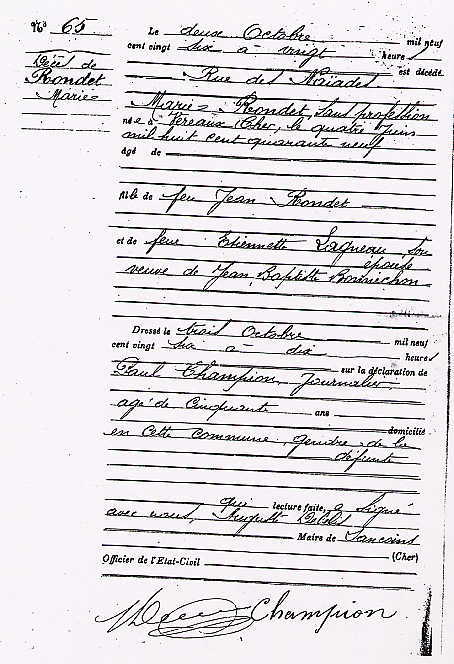 No 65
Décès de
Rondet
Marie
Le deux Octobre mil neuf
cent vingt six à vingt heures
Rue des Naïades est décédé
Marie Rondet, Sans profession
née à Vereaux (Cher), le quatre juin
mil huit cent quarante neuf
âgé de
fille de feu Jean Rondet
et de feue Etiennette Lagneau, son
épouse
veuve de Jean Baptiste Bonnichon
Dressé le trois Octobre mil neuf
cent vingt six à dix heures
sur la déclaration de
Paul Champion, Journalier,
agé de Cinquante ans domicilié
en cette commune, gendre de la
défunte
qui lecture faite, a signé
avec nous, Auguste
Maire de Sancoins
(Cher)
Officier de l'Etat-Civil
Champion